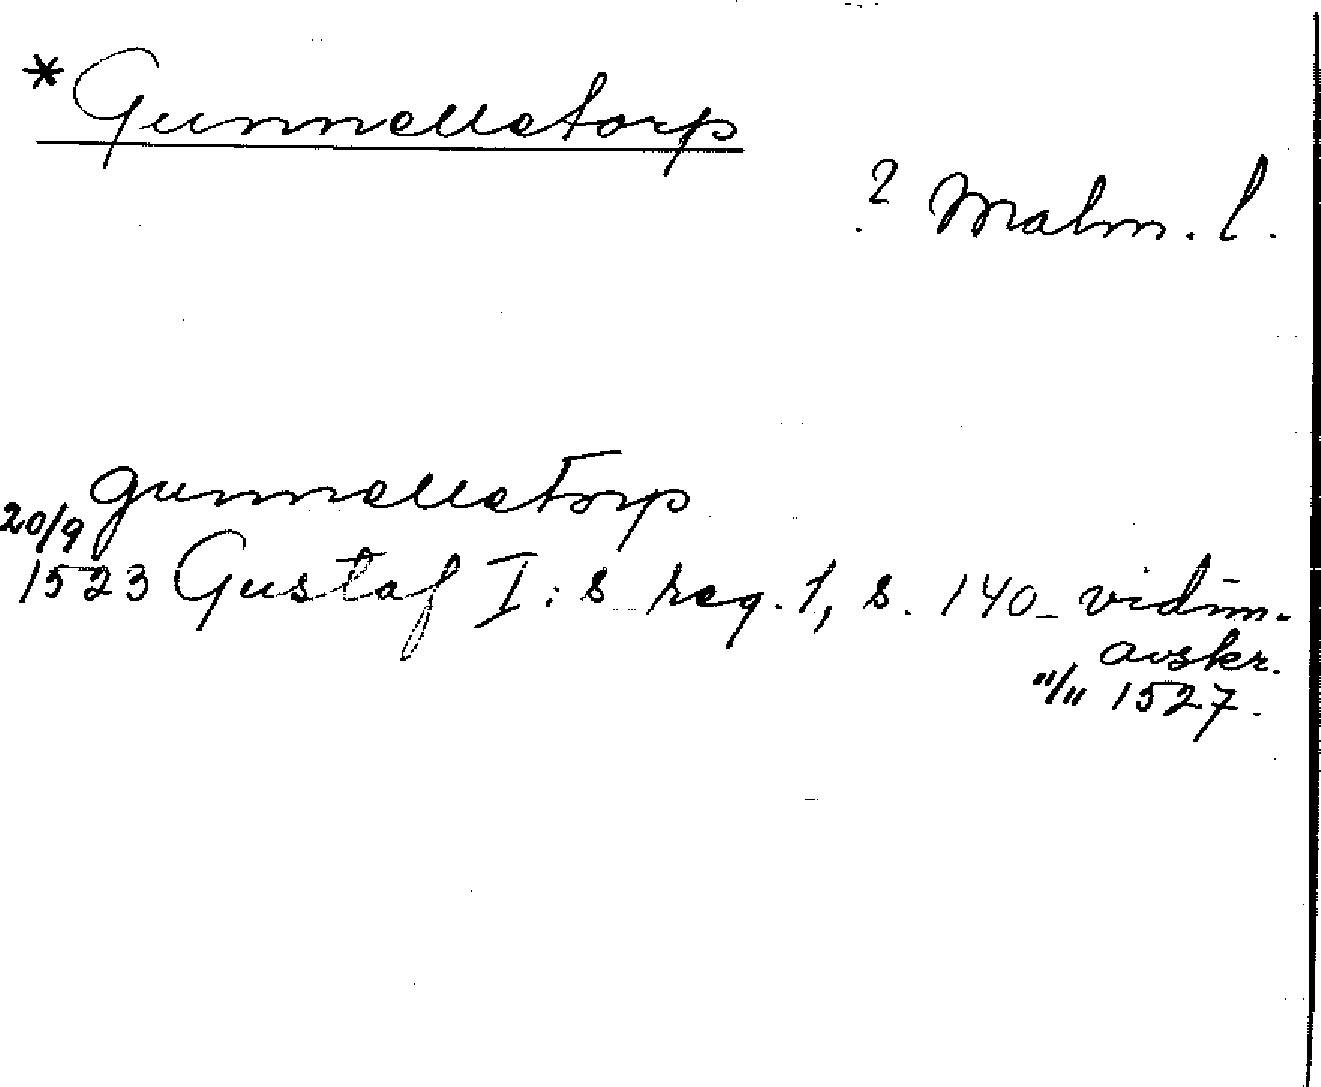 *Gunnelletorp
? Malm. l.
gunnelletorp
20/9
1523 Gustaf I:s reg. 1, s. 140 - vidim.
avskr.
11/11 1527.